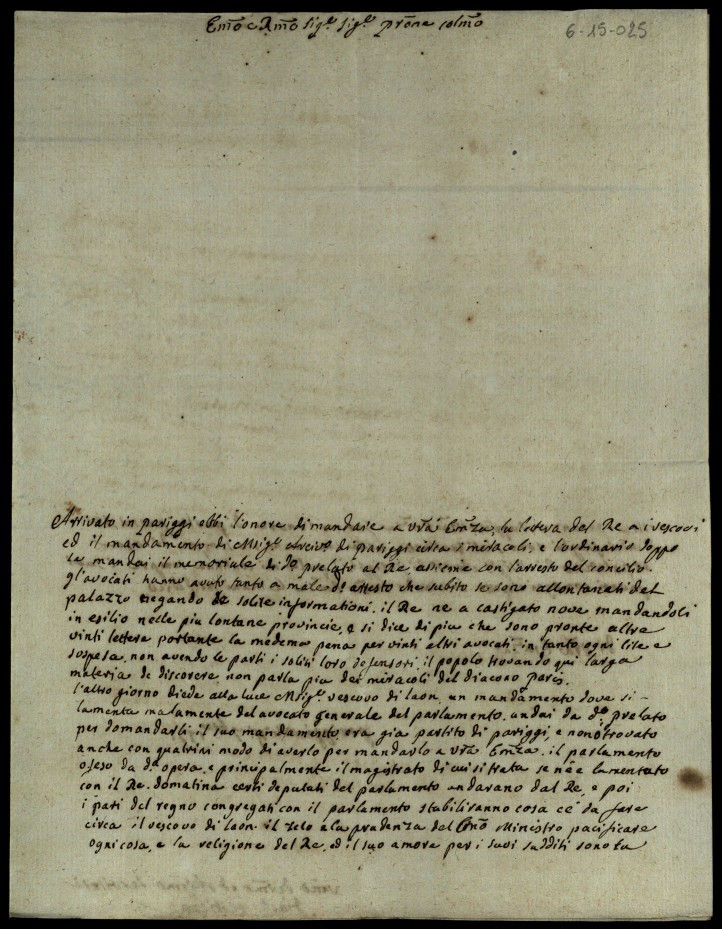 Emo e Rmo Sigre Sigre prone colmo
6-15-025
Arrivato in pariggi ebbi l'onore di mandare a vra Emza, la lettera del Re a i vescovi
ed il mandamento di Msigr arcivo di pariggi circa i miracoli, e l'ordinario doppo
le mandai il memoriale di do prelato al Re assieme con l'arresto del concilio.
gl'avocati hanno avuto tanto a male do arresto che subito se sono allontanati dal
palazzo negando de solite informationi. il Re ne a castigato nove mandandoli
in esilio nelle piu lontane provincie, e si dice di piu che sono pronte altre
vinti lettere portante la medema pena per vinti altri avocati. in tanto ogni lite e
sospesa, non avendo le parti i soliti loro defensori. il popolo trovando qui larga
materia de discorere, non parla piu dei miracoli del diacono paris.
l'altro giorno diede alla luce Msigr vescovo di laon, un mandamento dove si -
lamenta malamente del avocato generale del parlamento. andai da do prelato
per domandarli il suo mandamento era gia partito di pariggi, e non o trovato
anche con qualsivi modo di averlo per mandarlo a vra Emza. il parlamento
ofeso da da opera, e principalmente il magistrato di cui si trata se n'è e lamentato
con il Re. domatina certi deputati del parlamento andarano dal Re, e poi
i pari del regno congregati con il parlamento stabiliranno cosa c'é da fare
circa il vescovo di laon. il zelo e la prudenza del Emo Ministro pacificare
ogni cosa, e la religione del Re, ed il suo amore per i suoi sudditi sono tu